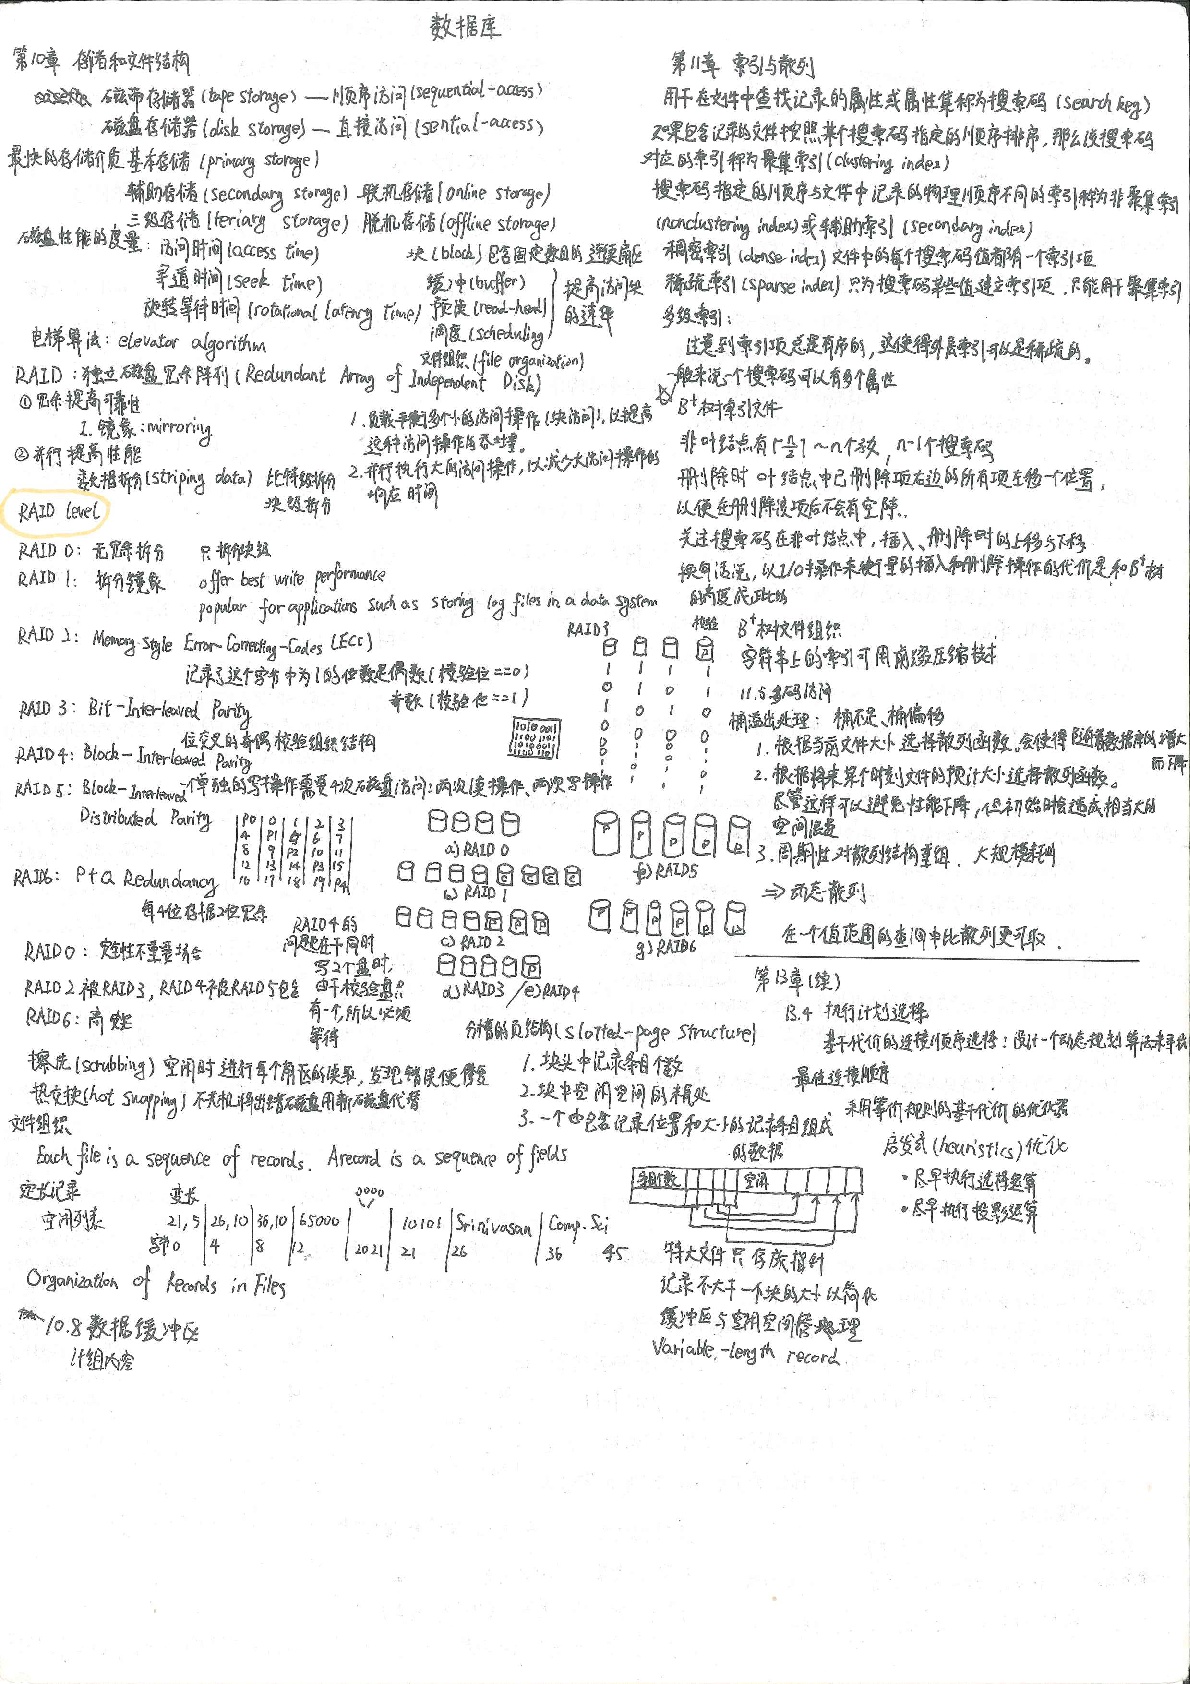 数据库
第10章 存储和文件结构
磁带存储器(tape storage) — 顺序访问(sequential-access)
磁盘存储器(disk storage) — 直接访问(sential-access)
最快的存储介质 基本存储(primary storage)
辅助存储(secondary storage) 联机存储(online storage)
三级存储(teriary storage) 脱机存储(offline storage)
磁盘性能的度量：访问时间(access time)
寻道时间(seek time)
旋转等待时间(rotational latency time)
块(block)包含固定数目的连续扇区
缓冲(buffer)
预读(read-head)
调度(scheduling)
文件组织(file organization)
提高访问块
的速率
电梯算法：elevator algorithm
RAID：独立磁盘冗余阵列(Redundant Array of Independent Disk)
①冗余提高可靠性
1. 镜象：mirroring
②并行提高性能
数据拆分(striping data) 比特级拆分
块级拆分
1. 负载平衡多个小的访问操作(块访问)，以提高
这种访问操作的吞吐量。
2. 并行执行大的访问操作，以减少大访问操作的
响应时间
RAID Level
RAID 0：无冗余拆分 只拆分块级
RAID 1：拆分镜象 offer best write performance
popular for applications such as storing log files in a data system
RAID 2：Memory-Style Error-Correcting-Codes (ECC)
记录了这个字节中为1的位数是偶数(校验位==0)
奇数(校验位==1)
RAID 3：Bit-Interleaved Parity
位交叉的奇偶校验组织结构
RAID 4：Block-Interleaved Parity
RAID 5：Block-Interleaved 一个单独的写操作需要4次磁盘访问：两次读操作、两次写操作
Distributed Parity
P0 | 0 | 1 | 2 | 3
4 | P1 | 5 | 6 | 7
8 | 9 | P2 | 10 | 11
12 | 13 | 14 | P3 | 15
16 | 17 | 18 | 19 | P4
RAID3 校验
a) RAID 0
b) RAID 1
c) RAID 2
d) RAID3 / e) RAID4
f) RAID5
g) RAID6
RAID6：P+Q Redundancy
每4位数据2位冗余
RAID4的
问题在于同时
写2个盘时，
由于校验盘只
有一个，所以必须
等待
RAID 0：安全性不重要场合
RAID 2被RAID3，RAID4被RAID5包含
RAID6：高安全
擦洗(scrubbing) 空闲时进行每个扇区的读取，发现错误便修复
热交换(hot swapping) 不关机将出错磁盘用新磁盘代替
文件组织
Each file is a sequence of records. A record is a sequence of fields
定长记录 变长
空闲列表
21,5 | 26,10 | 36,10 | 65000 | 0000 | 10101 | Srinivasan | Comp.Sci
字节0 4 8 12 20 21 21 26 36 45
Organization of Records in Files
10.8 数据缓冲区
计组内容
分槽的页结构(Slotted-page structure)
1. 块头中记录条目个数
2. 块中空闲空间的末尾处
3. 一个由包含记录位置和大小的记录条目组成
的数据
条目个数 空闲
特大文件只存放指针
记录不大于一个块的大小以简化
缓冲区与空闲空间管理
Variable-length record.
第11章 索引与散列
用于在文件中查找记录的属性或属性集称为搜索码(search key)
如果包含记录的文件按照某个搜索码指定的顺序排序，那么该搜索码
对应的索引称为聚集索引(clustering index)
搜索码指定的顺序与文件中记录的物理顺序不同的索引称为非聚集索引
(nonclustering index)或辅助索引(secondary index)
稠密索引(dense index)文件中的每个搜索码值都有一个索引项
稀疏索引(sparse index)只为搜索码某些值建立索引项．只能用于聚集索引
多级索引：
注意到索引项总是有序的，这使得外层索引可以是稀疏的。
一般来说一个搜索码可以有多个属性
☆ B⁺树索引文件
非叶结点有⌈n/2⌉～n个孩，n-1个搜索码
删除时 叶结点中已删除项右边的所有项左移一个位置，
以便在删除该项后不会有空隙．
关注搜索码在非叶结点中，插入、删除时的上移与下移
换句话说，以I/O操作来衡量的插入和删除操作的代价是和B⁺树
的高度成正比的
B⁺树文件组织
字符串上的索引可用前缀压缩技术
11.5 多码访问
桶溢出处理：桶不足、桶偏移
1. 根据当前文件大小选择散列函数．会使得随着数据库的增大
而下降
2. 根据将来某个时刻文件的预计大小选择散列函数。
尽管这样可以避免性能下降，但初始时会造成相当大的
空间浪费
3. 周期性对散列结构重组． 大规模耗时
⇒ 动态散列
在一个值范围的查询中比散列更可取．
第13章(续)
13.4 执行计划选择
基于代价的连接顺序选择：设计一个动态规划算法来寻找
最佳连接顺序
采用等价规则的基于代价的优化器
启发式(heuristics)优化
·尽早执行选择运算
·尽早执行投影运算